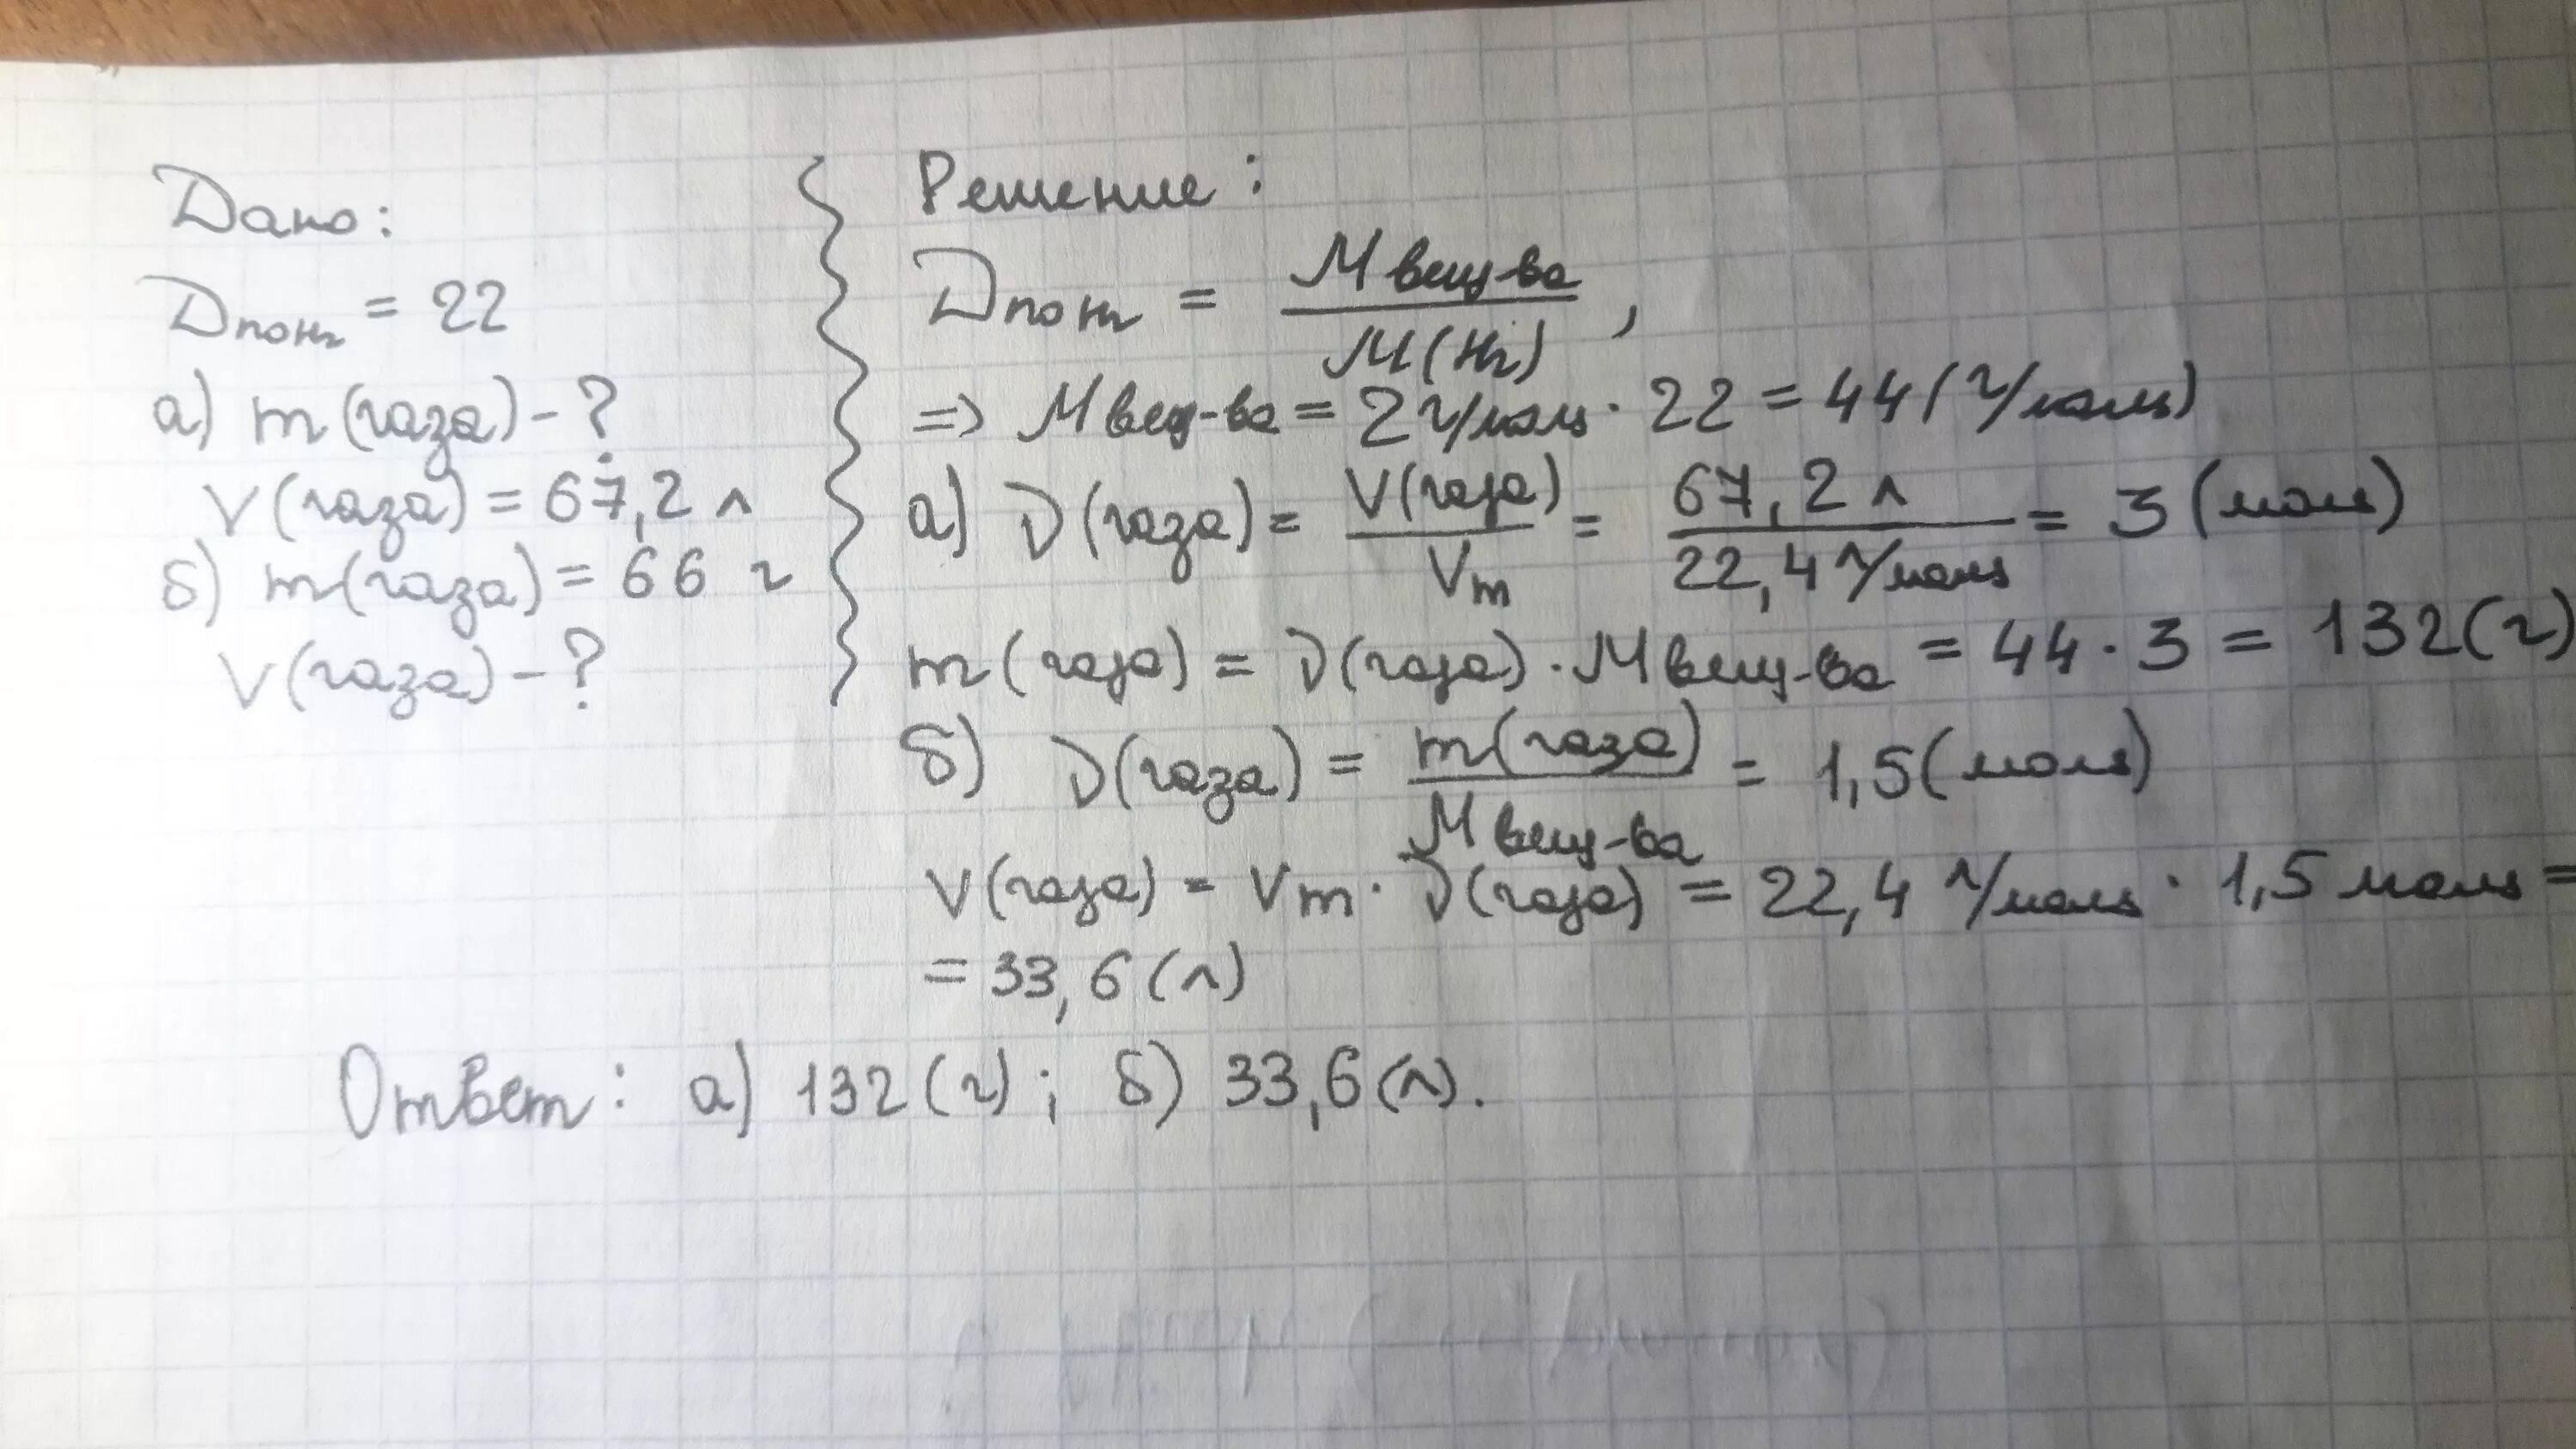 Дано:
DпоH₂ = 22
а) m(газа) - ?
V(газа) = 67,2 л
б) m(газа) = 66 г
V(газа) - ?
Решение:
DпоH₂ = M вещ-ва / M(H₂) ,
=> M вещ-ва = 2 г/моль · 22 = 44 (г/моль)
а) ν(газа) = V(газа) / Vm = 67,2 л / 22,4 л/моль = 3 (моль)
m(газа) = ν(газа) · M вещ-ва = 44 · 3 = 132 (г)
б) ν(газа) = m(газа) / M вещ-ва = 1,5 (моль)
V(газа) = Vm · ν(газа) = 22,4 л/моль · 1,5 моль =
= 33,6 (л)
Ответ: а) 132 (г) ; б) 33,6 (л).